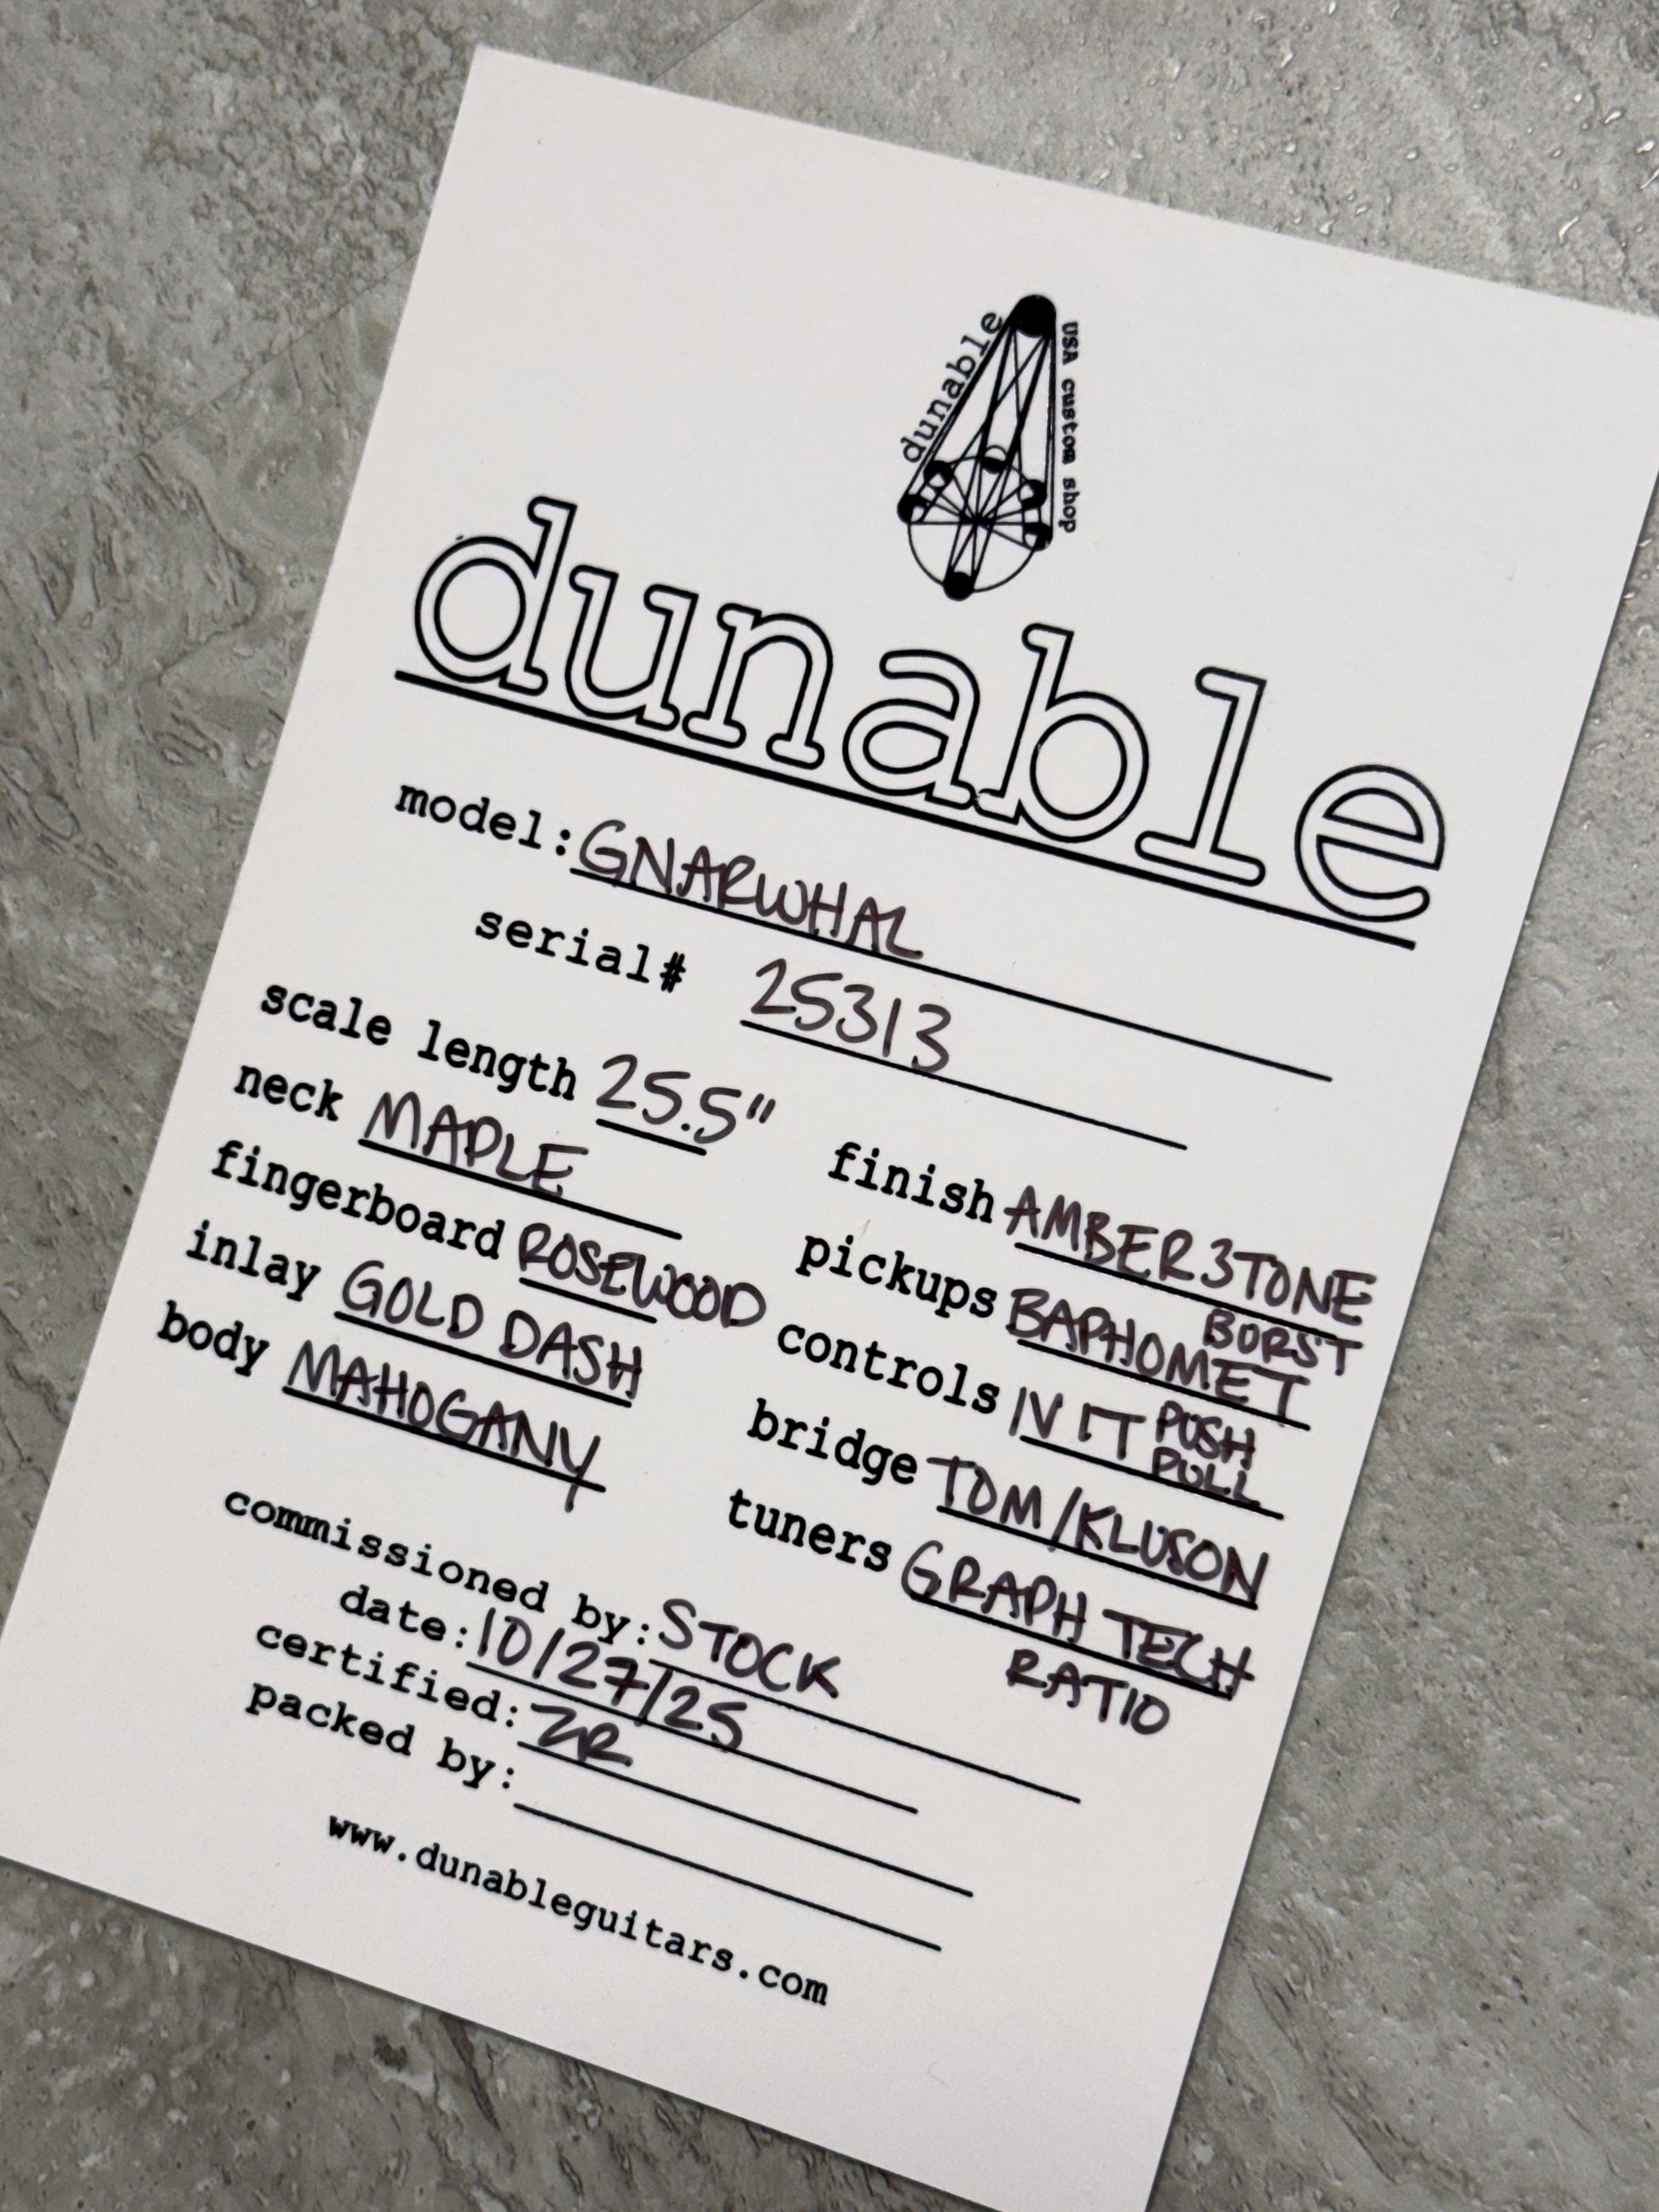 dunable
USA custom shop
dunable
model: GNARWHAL
serial# 25313
scale length 25.5"
neck MAPLE
fingerboard ROSEWOOD
inlay GOLD DASH
body MAHOGANY
finish AMBER 3TONE
BURST
pickups BAPHOMET
controls 1V 1T PUSH
PULL
bridge TOM/KLUSON
tuners GRAPH TECH
RATIO
commissioned by: STOCK
date: 10/27/25
certified: ZR
packed by:
www.dunableguitars.com